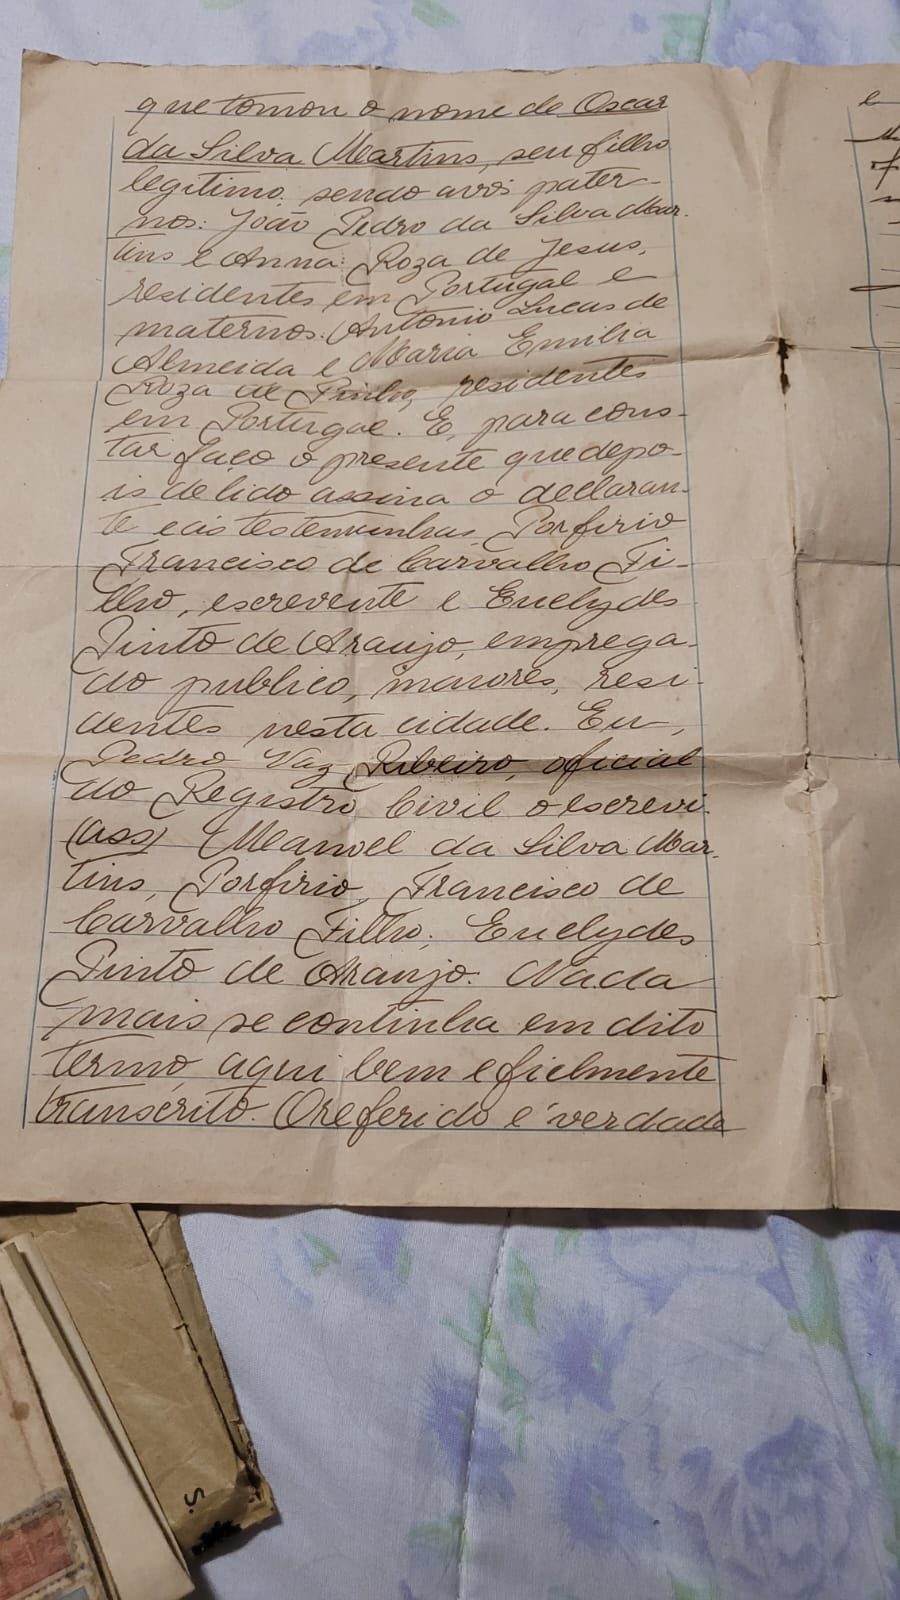 que tomou o nome de Oscar
da Silva Martins, seu filho
legitimo, sendo avós pater-
nos: João Pedro da Silva Mar-
tins e Anna Roza de Jesus,
residentes em Portugal e
maternos: Antonio Lucas de
Almeida e Maria Emilia
Roza de Pinho, residentes
em Portugal. E, para cons-
tar faço o presente que depo-
is de lido assina o declaran-
te e as testemunhas, Porfirio
Francisco de Carvalho Fi-
lho, escrevente e Euclydes
Pinto de Araujo, emprega-
do publico, maiores, resi-
dentes nesta cidade. Eu,
Pedro Vaz Ribeiro, oficial
do Registro Civil o escrevi.
(ass) Manoel da Silva Mar-
tins, Porfirio, Francisco de
Carvalho Filho, Euclydes
Pinto de Araujo. Nada
mais se continha em dito
termo, aqui bem e fielmente
transcrito. O referido é verdade
e
S.